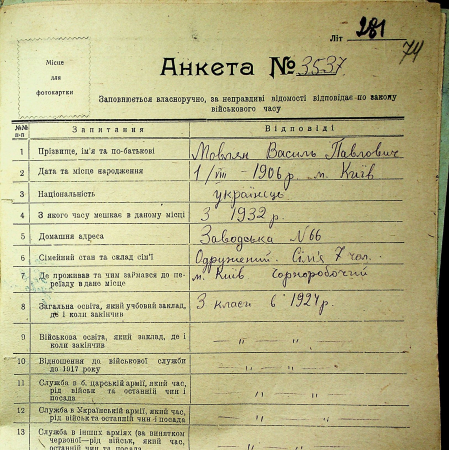 Літ 281
74
Місце
для
фотокартки
Анкета № 3537
Заповнюється власноручно, за неправдиві відомості відповідає по закону
військового часу
№№ п-п Запитання Відповіді
1 Прізвище, ім'я та по-батькові Мовлян Василь Павлович
2 Дата та місце народження 1/VIII - 1906 р. м. Київ
3 Національність українець
4 З якого часу мешкає в даному місці З 1932 р.
5 Домашня адреса Заводська № 66
6 Сімейний стан та склад сім'ї Одружений. Сім'я 7 чол.
7 Де проживав та чим займався до пе-
реїзду в дане місце м. Київ чорноробочий
8 Загальна освіта, який учбовий заклад,
де і коли закінчив 3 класи в 1924 р.
9 Військова освіта, який заклад, де і
коли закінчив — " —
10 Відношення до військової служби
до 1917 року — " — "
11 Служба в б. царській армії, який час,
рід військ та останній чин і
посада " "
12 Служба в Українській армії, який час,
рід військ та останній чин і посада — " — "
13 Служба в інших арміях (за винятком
червоної—рід військ, який час,
останній чин та посада — " — "